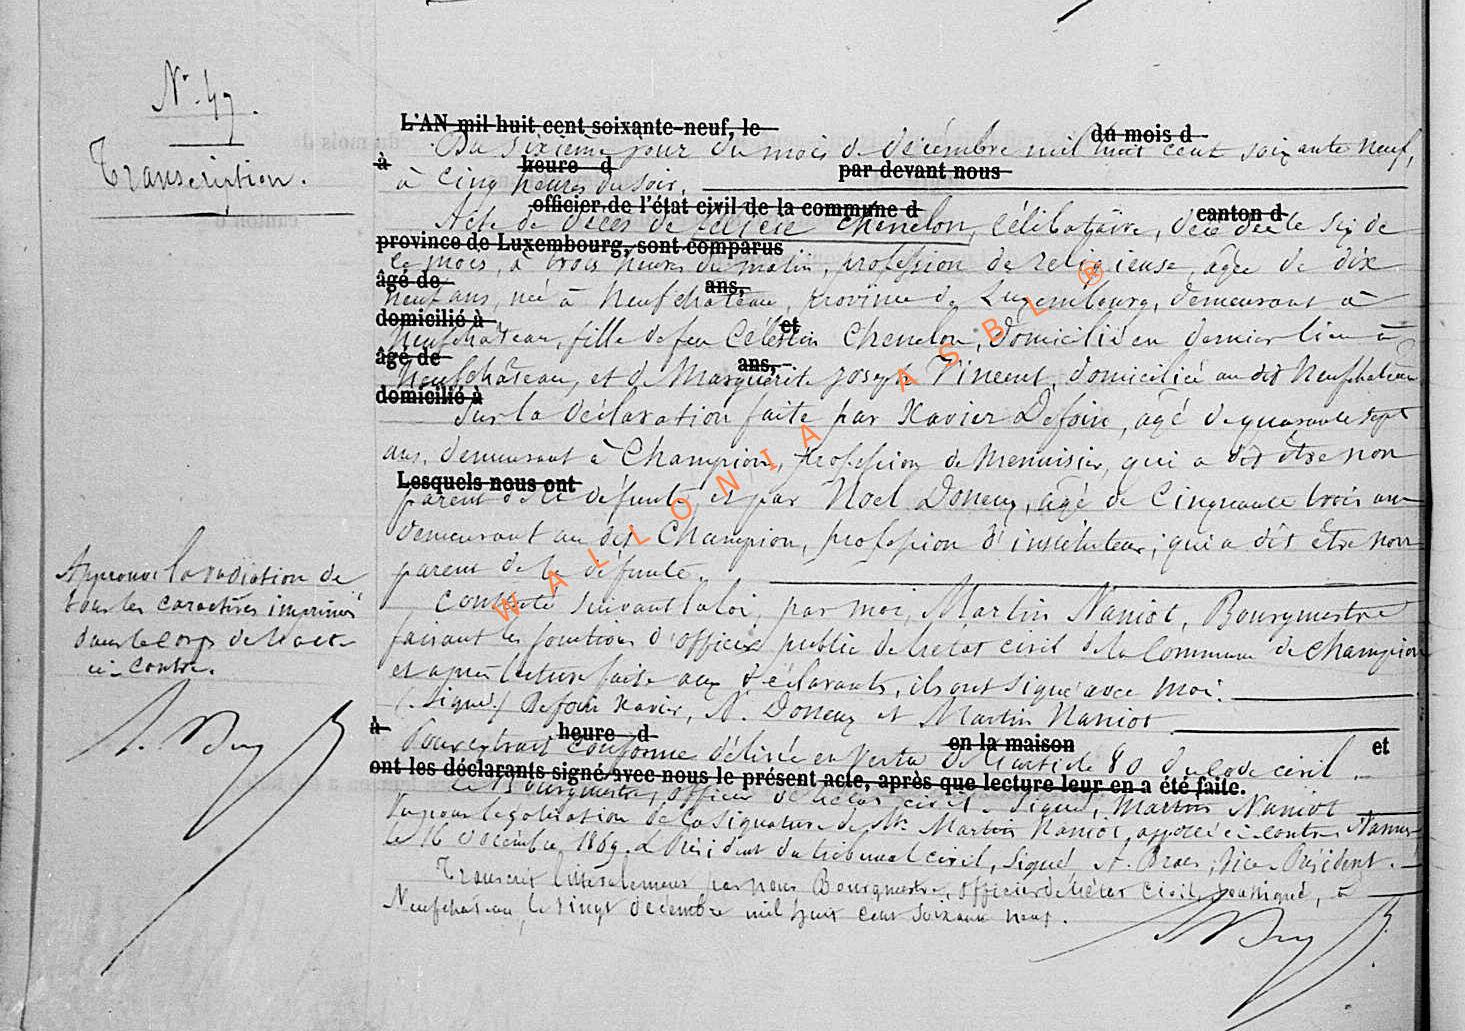 N° 47.
Transcription.
L'AN mil huit cent soixante-neuf, le
du mois d
Du sixième jour du mois de décembre mil huit cent soixante neuf,
à
heure d
par devant nous
à cinq heures du soir.
officier de l'état civil de la commune d
canton d
Acte de décès de Chenelon, célibataire, décédée le six de
province de Luxembourg, sont comparus
ce mois, à trois heures du matin, profession de religieuse, âgée de dix
âgé de
ans,
neuf ans, née à Neufchâteau, province de Luxembourg, demeurant à
domicilié à
et
Neufchâteau, fille de feu Célestin Chenelon, domicilié en dernier lieu à
âgé de
ans,
Neufchâteau, et de Marguerite Joseph Vincent, domiciliée au dit Neufchateau
domicilié à
Sur la déclaration faite par Xavier Defoin, agé de quarante sept
ans, demeurant à Champion, profession de Menuisier, qui a dit être non
Lesquels nous ont
parent de la défunte, et par Noel Doneux, agé de cinquante trois ans
demeurant au dit Champion, profession d'instituteur, qui a dit être non
parent de la défunte.
Constaté suivant la loi, par moi, Martin Naniot, Bourgmestre
faisant les fonctions d'officier public de l'état civil de la commune de Champion
et après lecture faite aux déclarants, ils ont signé avec moi.
(Signé) Defoin Xavier, N. Doneux et Martin Naniot
à
heure d
en la maison
et
Pour extrait conforme délivré en vertu de l'article 80 du code civil.
ont les déclarants signé avec nous le présent acte, après que lecture leur en a été faite.
Le Bourgmestre, officier de l'état civil, Signé, Martin Naniot
Vu pour légalisation de la signature de Mr Martin Naniot, apposée ci-contre Namur
le 16 Décembre 1869. Le Président du tribunal civil, signé, Vice-Président.
Transcrit littéralement par nous Bourgmestre, officier de l'état civil, soussigné, à
Neufchateau, le vingt décembre mil huit cent soixante neuf.
Approuvé la radiation de
tous les caractères imprimés
dans le corps de l'acte
ci-contre.
WALLONIA ASBL ®